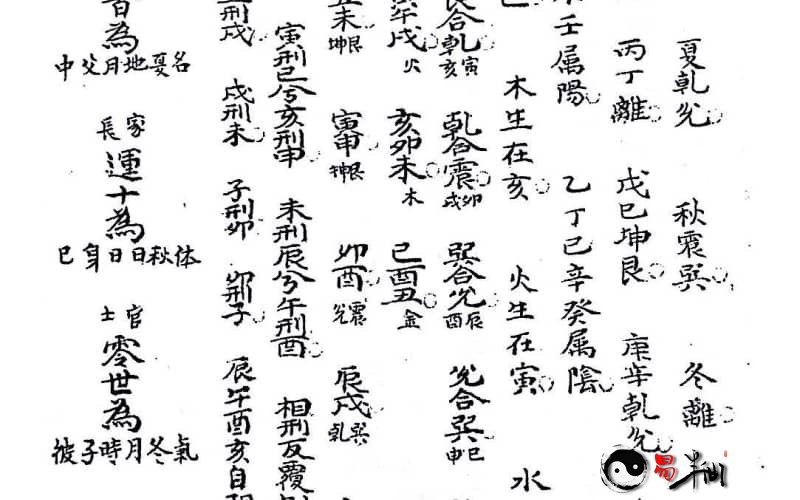 夏乾兌 秋震巽 冬離
丙丁離 戊巳坤艮 庚辛乾兌
壬属陽 乙丁巳辛癸属陰
木生在亥 火生在寅 水
合乾寅亥 乾合震卯戌 巽合兌辰酉 兌合巽巳申
午戌火 亥卯未木 巳酉丑金
未艮坤 寅申艮坤 卯酉震兌 辰戌巽乾
寅刑巳兮亥刑申 未刑辰兮午刑酉 相刑反覆
刑戌 戌刑未 子刑卯 卯刑子 辰午酉亥自
為
名夏地月父中
家長
運十為
体秋日日身巳
官士
零世為
氣冬月時子彼
易半仙